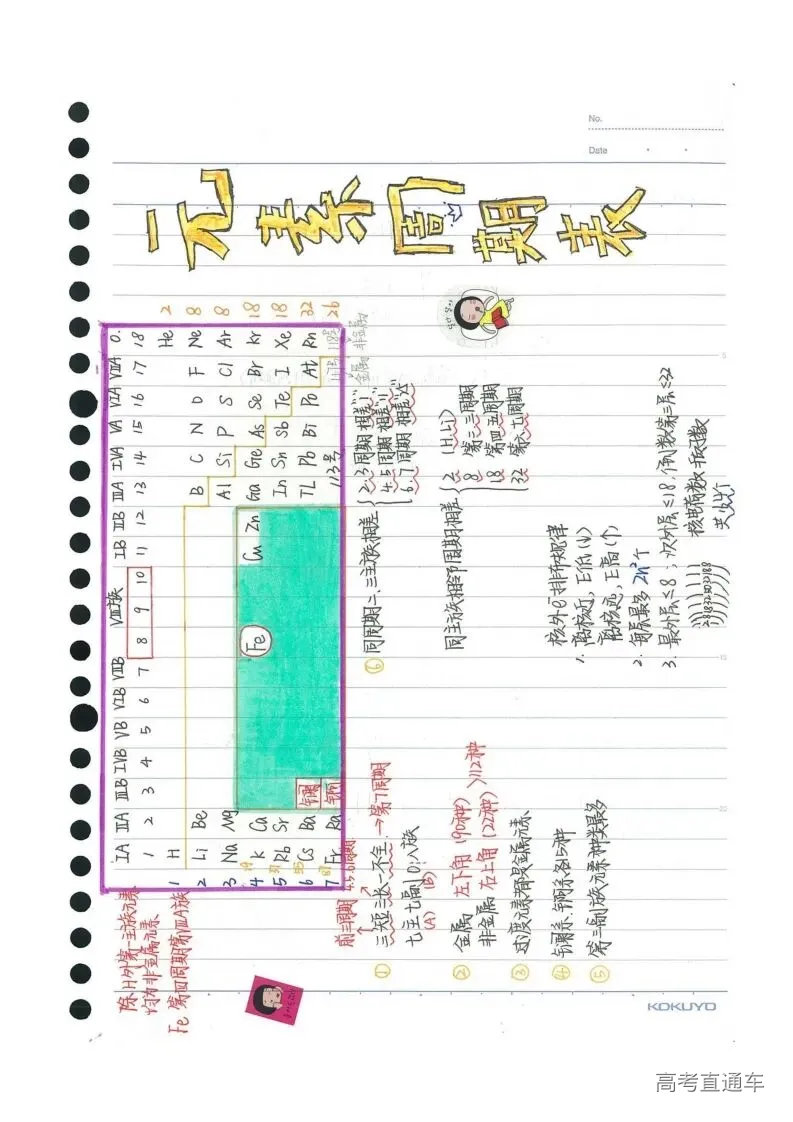 No.
Date
元素周期表
ⅠA ⅡA ⅢB ⅣB ⅤB ⅥB ⅦB Ⅷ族 ⅠB ⅡB ⅢA ⅣA ⅤA ⅥA ⅦA 0.
1 2 3 4 5 6 7 8 9 10 11 12 13 14 15 16 17 18
1 H He 2
2 Li Be B C N O F Ne 8
3 Na Mg Al Si P S Cl Ar 8
4 19 K Ca Fe Cu Zn Ga Ge As Se Br Kr 18
5 37 Rb Sr In Sn Sb Te I Xe 18
6 55 Cs Ba 镧 TL Pb Bi Po At Rn 32
7 87 Fr Ra 锕 113号 117号 118号 26
金属 非金属
Fe 第四周期第ⅧA族
前三周期 4.5.6周期
① 三短三长一不全→第7周期
七主七副1 0;八族
(A) (B)
② 金属 左下角 (90种)
非金属 右上角 (22种) >112种
③ 过渡元素都是金属元素
④ 镧系、锕系各15种
⑤ 第三副族元素种类最多
⑥ 同周期二、三主族相差
2.3周期 相差"1"
4.5周期 相差"11"
6.7周期 相差"25"
同主族相邻周期相差
2 (H.Li)
8 第二.三周期
18 第四.五周期
32 第六.七周期
核外e⁻排布规律
1. 离核近, E低(↓)
离核远, E高(↑)
2. 每层最多 2n²个
3. 最外层≤8; 次外层≤18, 倒数第三层≤32
2 8 18 32 32 18 8
核电荷数
KOKUYO
高考直通车